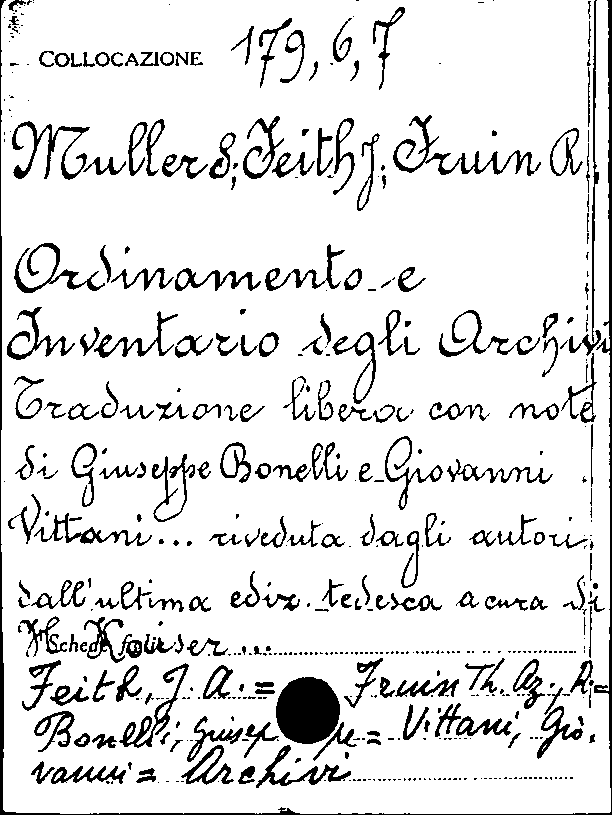 COLLOCAZIONE 179, 6, 7
Muller S; Feith J; Fruin R.
Ordinamento e
Inventario degli Archivi
Traduzione libera con note
di Giuseppe Bonelli e Giovanni
Vittani... riveduta dagli autori,
dall'ultima ediz. tedesca a cura di
H. Kaiser ...
Schede figlie
Feith, J. A. = Fruin Th. Az., R. =
Bonelli, Giusep pe = Vittani, Gio-
vanni = Archivi